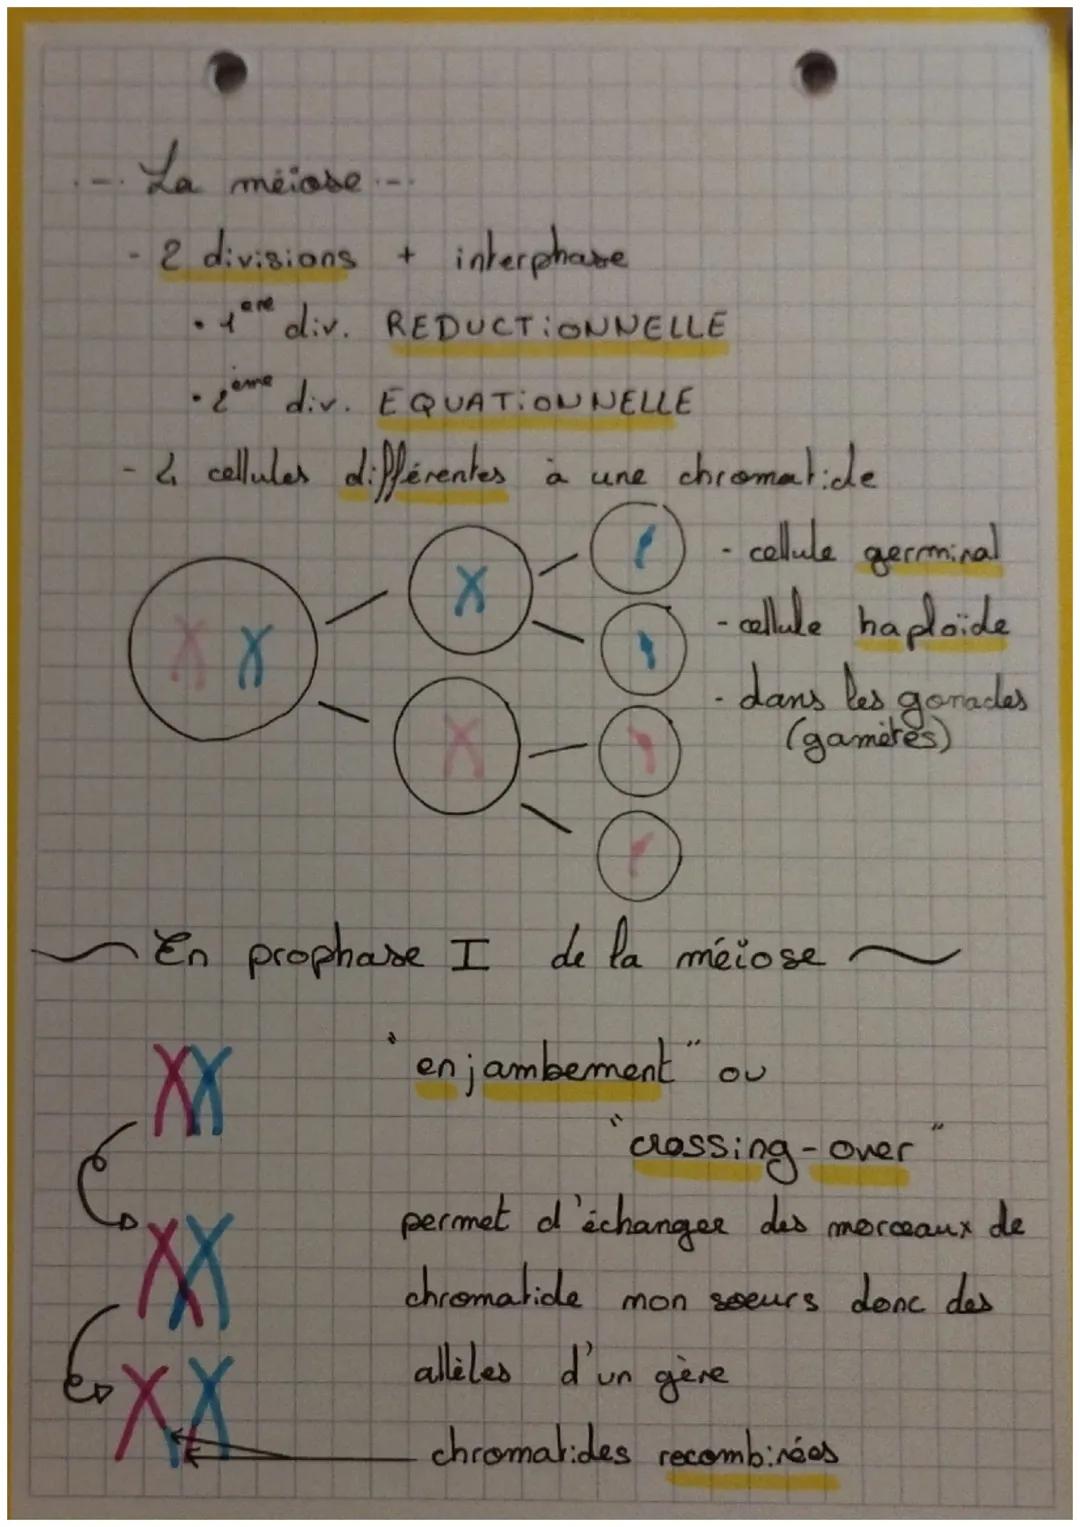 La méiose
- 2 divisions + interphase
• 1ère div. REDUCTIONNELLE
• 2ème div. EQUATIONNELLE
- 4 cellules différentes à une chromatide
- cellule germinal
- cellule haploïde
- dans les gonades
(gamètes)
En prophase I de la méiose
"enjambement" ou
"crossing-over"
permet d'échanger des morceaux de
chromatide non soeurs donc des
allèles d'un gène
chromatides recombinées